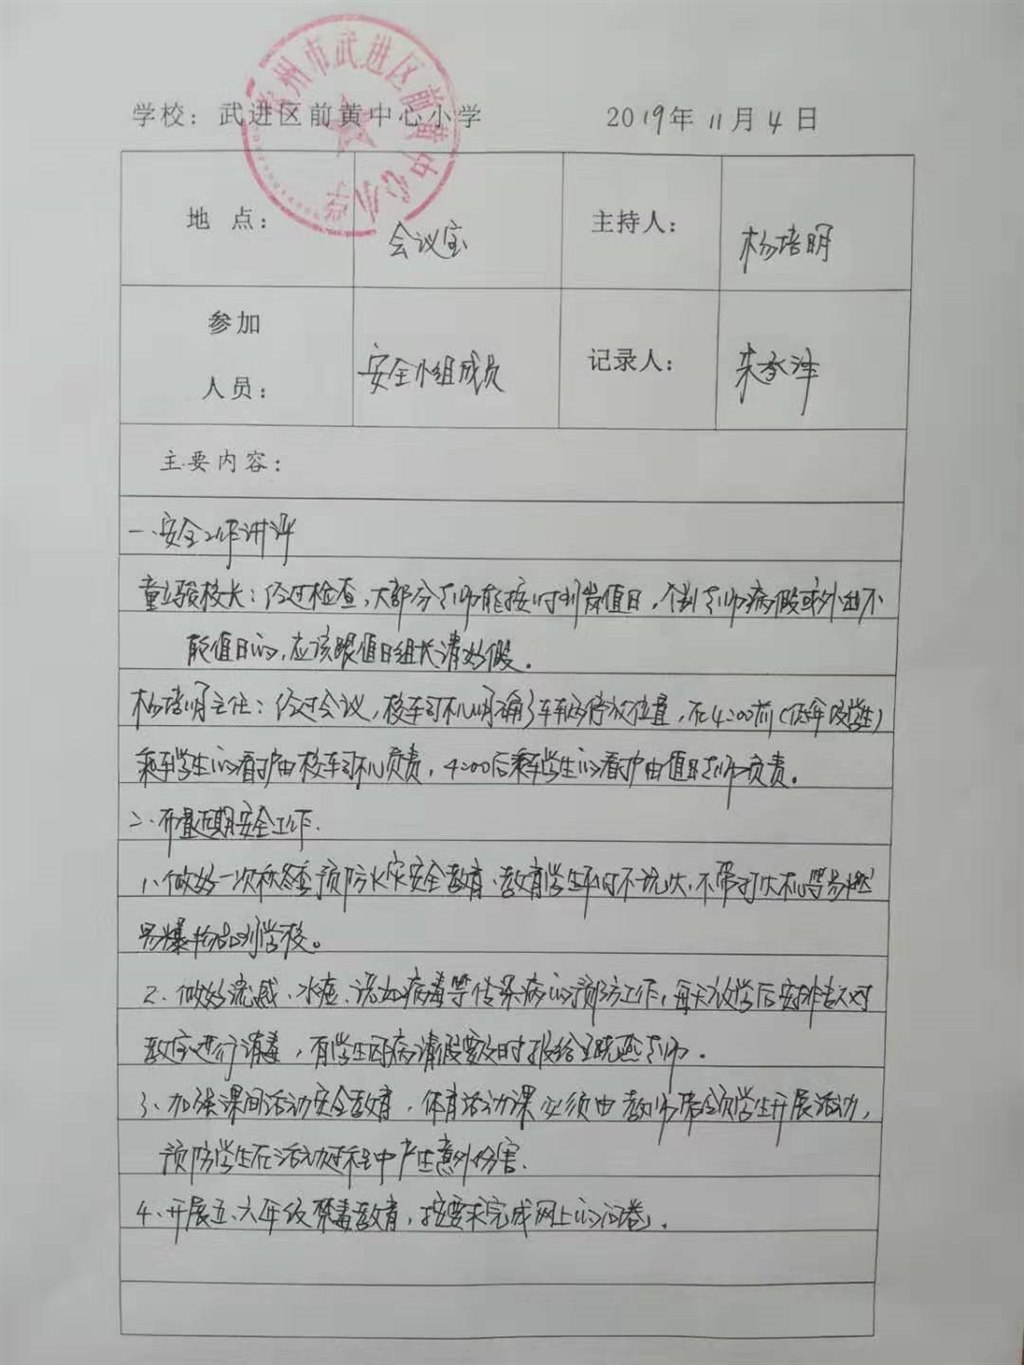 常州市武进区前黄中心小学
学校：武进区前黄中心小学 2019年11月4日
地 点： 会议室 主持人： 杨培明
参加
人员： 安全小组成员 记录人：
主要内容：
一、安全工作讲评
童立骏校长：经过检查，大部分老师能按时到岗值日，个别老师病假或外出不
能值日的，应该跟值日组长请好假。
杨培明主任：经过会议，校车司机明确了车辆的停放位置，在4:00前（低年段学生）
乘车学生的看护由校车司机负责，4:00后乘车学生的看护由值日老师负责。
二、布置近期安全工作.
1、做好一次秋冬季预防火灾安全教育、教育学生平时不玩火，不带打火机等易燃
易爆物品到学校。
2、做好流感、水痘、诺如病毒等传染病的预防工作，每天放学后安排专人对
教室进行消毒，有学生因病请假要及时报给王晓燕老师。
3、加强课间活动安全教育，体育活动课必须由教师带领学生开展活动，
预防学生在活动过程中产生意外伤害.
4、开展五、六年级禁毒教育，按要求完成网上的问卷。